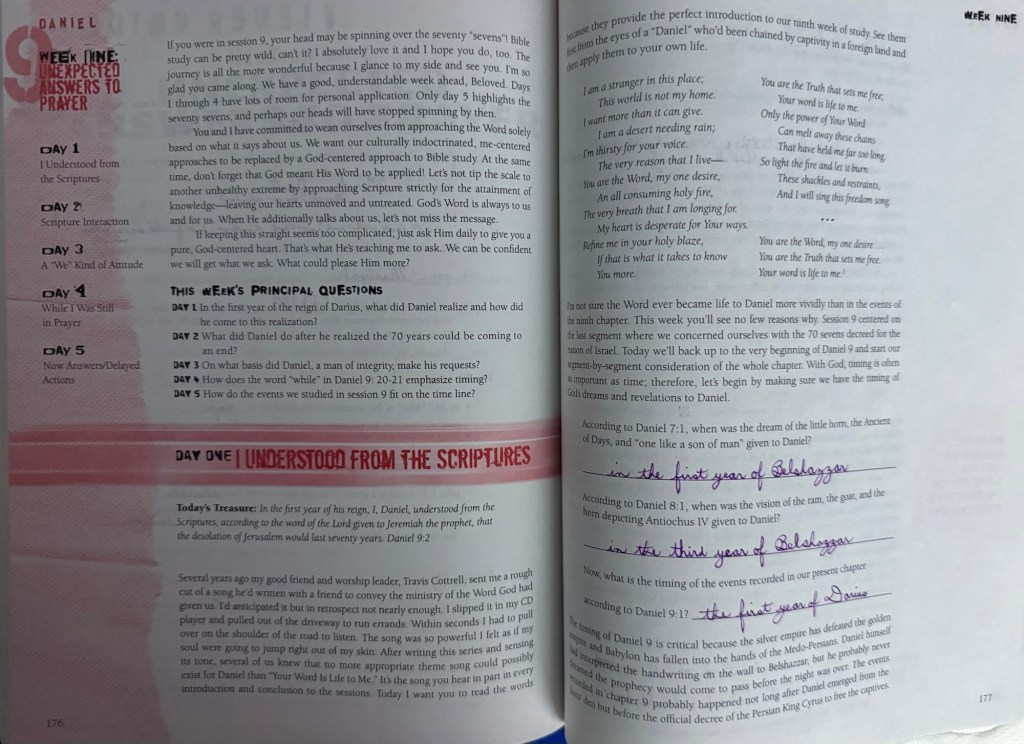 DANIEL
9
WEEK NINE:
UNEXPECTED
ANSWERS TO
PRAYER
DAY 1
I Understood from
the Scriptures
DAY 2
Scripture Interaction
DAY 3
A “We” Kind of Attitude
DAY 4
While I Was Still
in Prayer
DAY 5
Now Answers/Delayed
Actions
If you were in session 9, your head may be spinning over the seventy “sevens”! Bible
study can be pretty wild, can’t it? I absolutely love it and I hope you do, too. The
journey is all the more wonderful because I glance to my side and see you. I’m so
glad you came along. We have a good, understandable week ahead, Beloved. Days
1 through 4 have lots of room for personal application. Only day 5 highlights the
seventy sevens, and perhaps our heads will have stopped spinning by then.
You and I have committed to wean ourselves from approaching the Word solely
based on what it says about us. We want our culturally indoctrinated, me-centered
approaches to be replaced by a God-centered approach to Bible study. At the same
time, don’t forget that God meant His Word to be applied! Let’s not tip the scale to
another unhealthy extreme by approaching Scripture strictly for the attainment of
knowledge—leaving our hearts unmoved and untreated. God’s Word is always to us
and for us. When He additionally talks about us, let’s not miss the message.
If keeping this straight seems too complicated, just ask Him daily to give you a
pure, God-centered heart. That’s what He’s teaching me to ask. We can be confident
we will get what we ask. What could please Him more?
THIS WEEK’S PRINCIPAL QUESTIONS
DAY 1 In the first year of the reign of Darius, what did Daniel realize and how did
he come to this realization?
DAY 2 What did Daniel do after he realized the 70 years could be coming to
an end?
DAY 3 On what basis did Daniel, a man of integrity, make his requests?
DAY 4 How does the word “while” in Daniel 9: 20-21 emphasize timing?
DAY 5 How do the events we studied in session 9 fit on the time line?
DAY ONE | I UNDERSTOOD FROM THE SCRIPTURES
Today’s Treasure: In the first year of his reign, I, Daniel, understood from the
Scriptures, according to the word of the Lord given to Jeremiah the prophet, that
the desolation of Jerusalem would last seventy years. Daniel 9:2
Several years ago my good friend and worship leader, Travis Cottrell, sent me a rough
cut of a song he’d written with a friend to convey the ministry of the Word God had
given us. I’d anticipated it but in retrospect not nearly enough. I slipped it in my CD
player and pulled out of the driveway to run errands. Within seconds I had to pull
over on the shoulder of the road to listen. The song was so powerful I felt as if my
soul were going to jump right out of my skin. After writing this series and sensing
its tone, several of us knew that no more appropriate theme song could possibly
exist for Daniel than “Your Word Is Life to Me.” It’s the song you hear in part in every
introduction and conclusion to the sessions. Today I want you to read the words
176
WEEK NINE
because they provide the perfect introduction to our ninth week of study. See them
first from the eyes of a “Daniel” who’d been chained by captivity in a foreign land and
then apply them to your own life.
I am a stranger in this place;
This world is not my home.
I want more than it can give.
I am a desert needing rain;
I’m thirsty for your voice.
The very reason that I live—
You are the Word, my one desire,
An all consuming holy fire,
The very breath that I am longing for.
My heart is desperate for Your ways.
Refine me in your holy blaze,
If that is what it takes to know
You more.
You are the Truth that sets me free,
Your word is life to me.
Only the power of Your Word
Can melt away these chains
That have held me far too long.
So light the fire and let it burn
These shackles and restraints,
And I will sing this freedom song.
...
You are the Word, my one desire...
You are the Truth that sets me free.
Your word is life to me.¹
I’m not sure the Word ever became life to Daniel more vividly than in the events of
the ninth chapter. This week you’ll see no few reasons why. Session 9 centered on
the last segment where we concerned ourselves with the 70 sevens decreed for the
nation of Israel. Today we’ll back up to the very beginning of Daniel 9 and start our
segment-by-segment consideration of the whole chapter. With God, timing is often
as important as time; therefore, let’s begin by making sure we have the timing of
God’s dreams and revelations to Daniel.
According to Daniel 7:1, when was the dream of the little horn, the Ancient
of Days, and “one like a son of man” given to Daniel?
in the first year of Belshazzar
According to Daniel 8:1, when was the vision of the ram, the goat, and the
horn depicting Antiochus IV given to Daniel?
in the third year of Belshazzar
Now, what is the timing of the events recorded in our present chapter
according to Daniel 9:1? the first year of Darius
The timing of Daniel 9 is critical because the silver empire has defeated the golden
empire and Babylon has fallen into the hands of the Medo-Persians. Daniel himself
had interpreted the handwriting on the wall to Belshazzar, but he probably never
dreamed the prophecy would come to pass before the night was over. The events
recorded in chapter 9 probably happened not long after Daniel emerged from the
lions’ den but before the official decree of the Persian King Cyrus to free the captives.
177